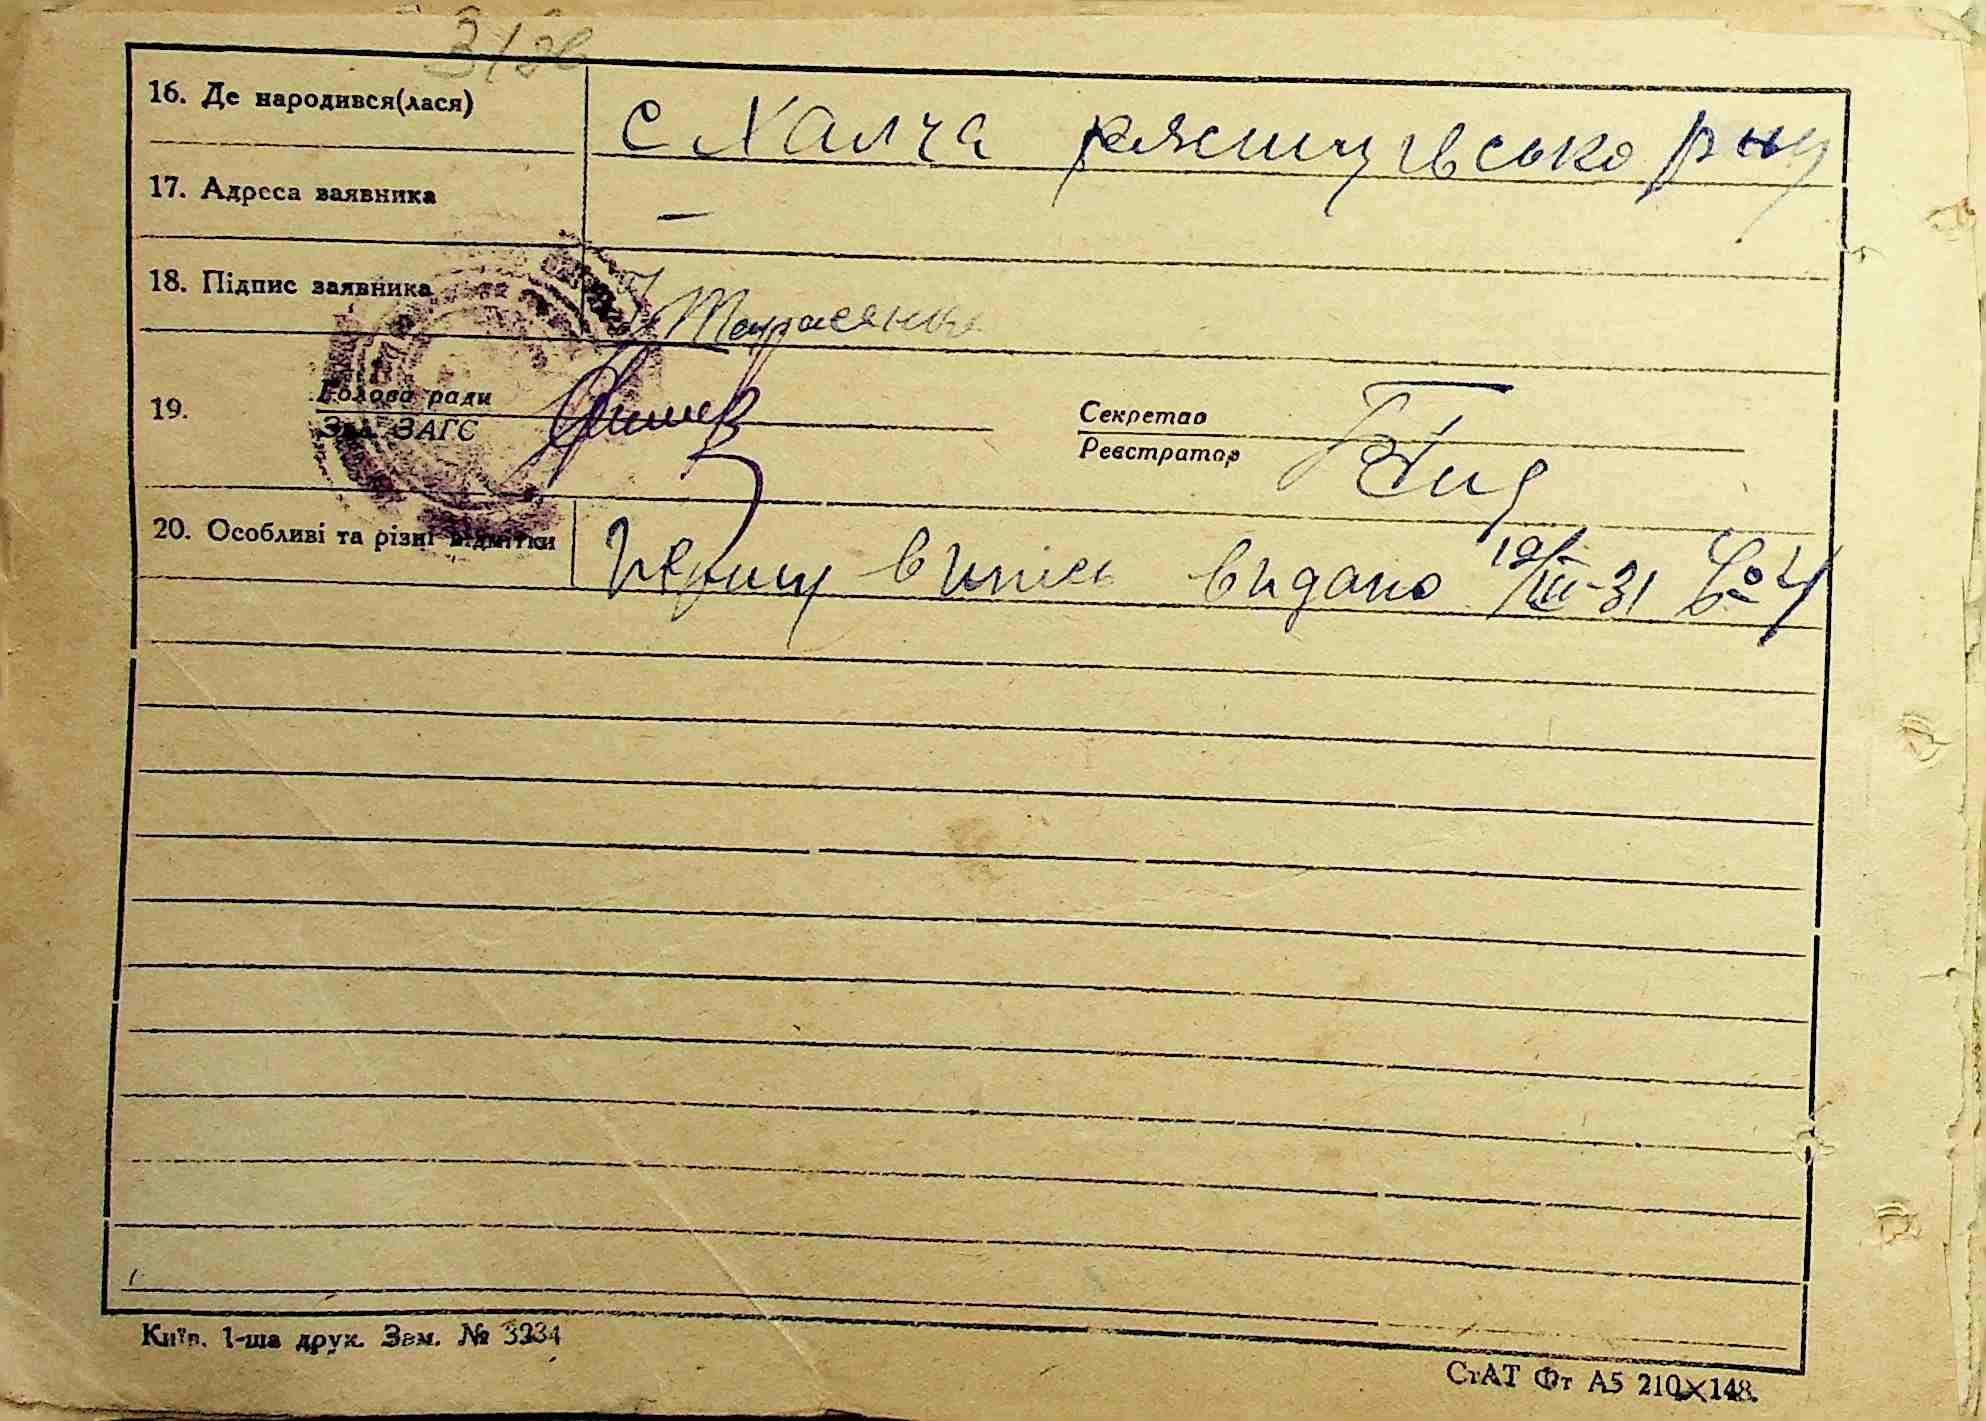 16. Де народився(лася) с Халча ржищівсько р ну
17. Адреса заявника –
18. Підпис заявника Тарасенко
19. Голова ради Секретар
Зав. ЗАГС Реєстратор
20. Особливі та різні відмітки Першу випись видано 19/III-31 № 4
Київ. 1-ша друк. Зам. № 3234
СтАТ Фт А5 210×148.